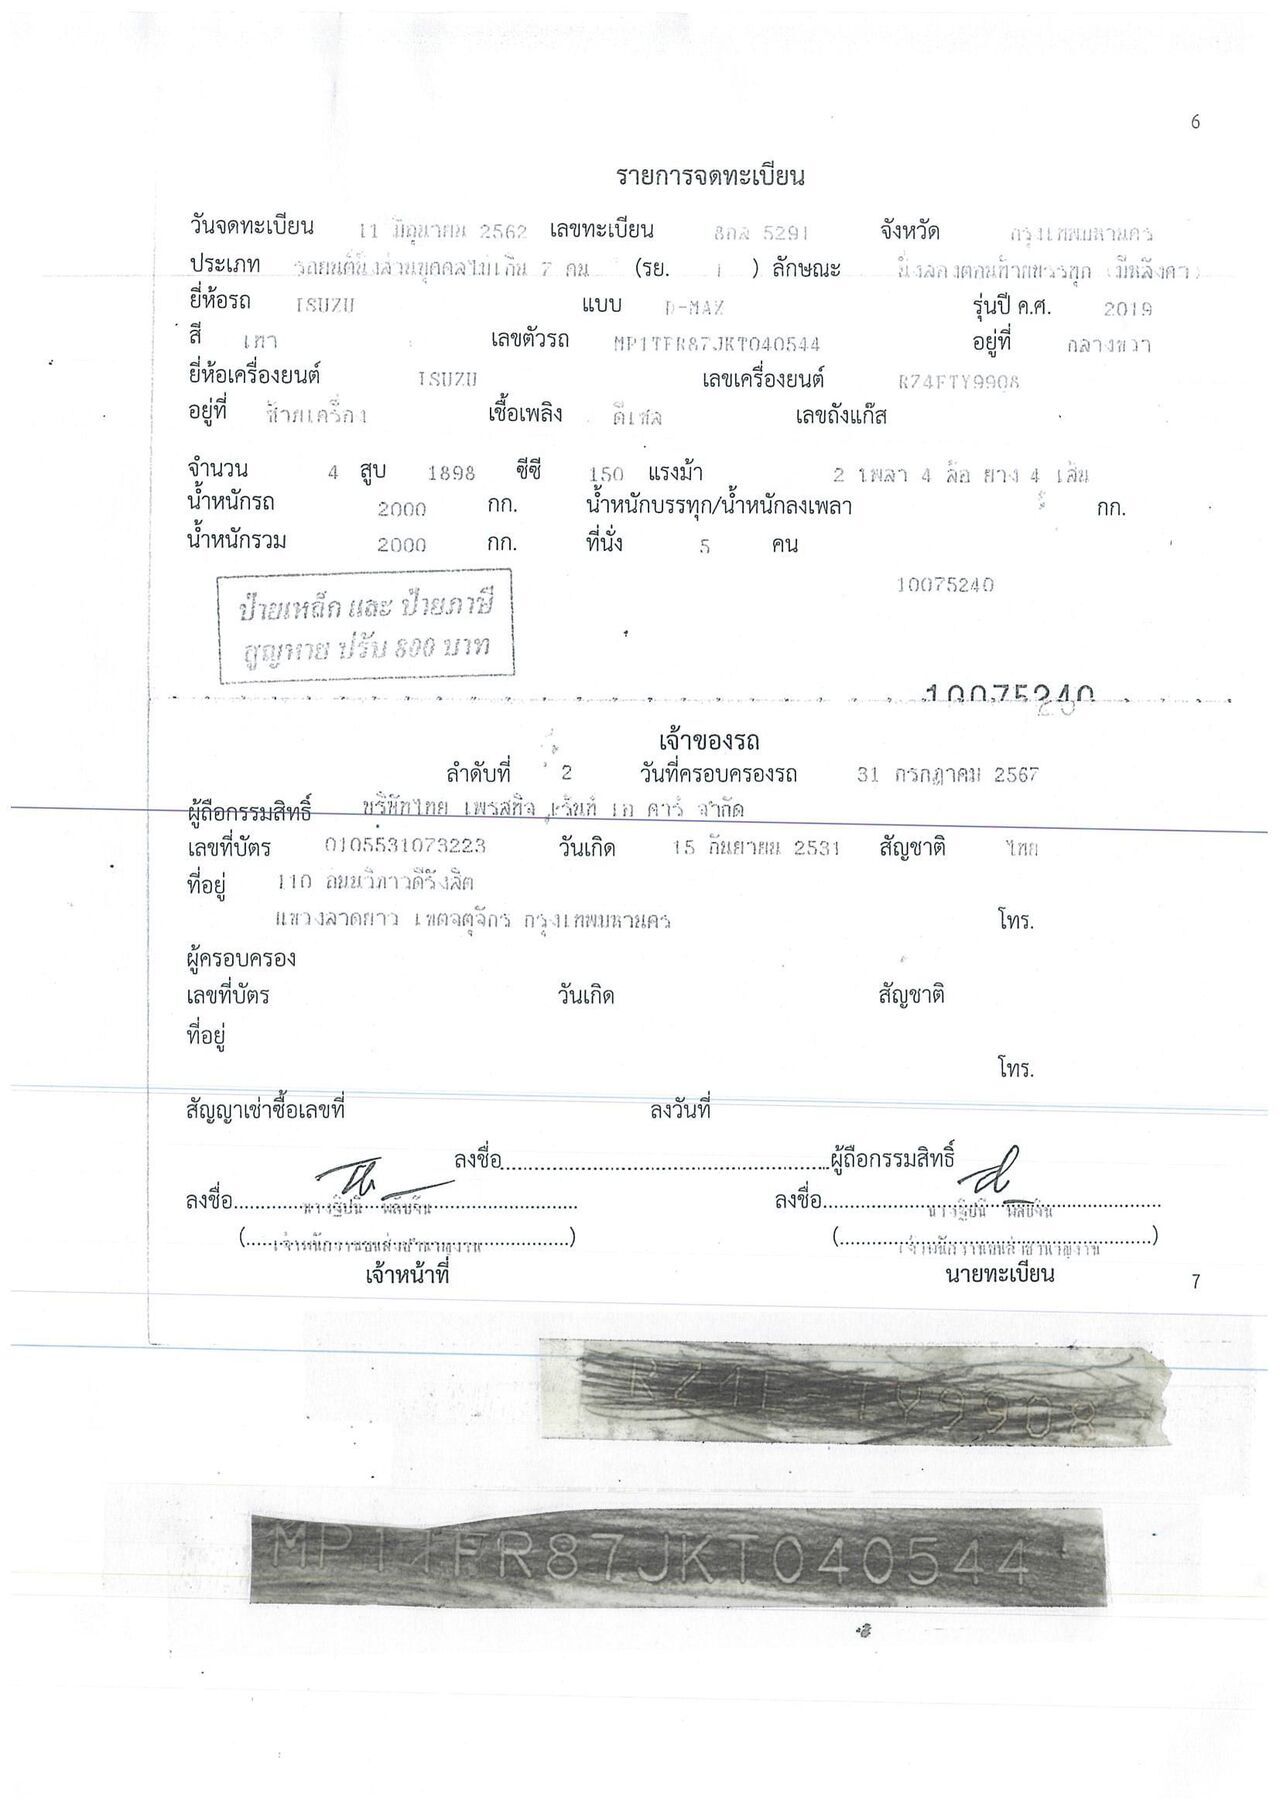 6
รายการจดทะเบียน
วันจดทะเบียน 11 มิถุนายน 2562 เลขทะเบียน 8กล 5291 จังหวัด กรุงเทพมหานคร
ประเภท รถยนต์นั่งส่วนบุคคลไม่เกิน 7 คน (รย. 1 ) ลักษณะ นั่งสองตอนท้ายบรรทุก (มีหลังคา)
ยี่ห้อรถ ISUZU แบบ D-MAX รุ่นปี ค.ศ. 2019
สี เทา เลขตัวรถ MP1TFR87JKT040544 อยู่ที่ กลางขวา
ยี่ห้อเครื่องยนต์ ISUZU เลขเครื่องยนต์ RZ4ETY9908
อยู่ที่ ซ้ายเครื่อง เชื้อเพลิง ดีเซล เลขถังแก๊ส
จำนวน 4 สูบ 1898 ซีซี 150 แรงม้า 2 เพลา 4 ล้อ ยาง 4 เส้น
น้ำหนักรถ 2000 กก. น้ำหนักบรรทุก/น้ำหนักลงเพลา กก.
น้ำหนักรวม 2000 กก. ที่นั่ง 5 คน
10075240
ป้ายเหล็ก และ ป้ายภาษี
สูญหาย ปรับ 800 บาท
10075240
เจ้าของรถ
ลำดับที่ 2 วันที่ครอบครองรถ 31 กรกฎาคม 2567
ผู้ถือกรรมสิทธิ์ บริษัทไทย เพรสทีจ เร้นท์ เอ คาร์ จำกัด
เลขที่บัตร 0105531073223 วันเกิด 15 กันยายน 2531 สัญชาติ ไทย
ที่อยู่ 110 ถนนวิภาวดีรังสิต
แขวงลาดยาว เขตจตุจักร กรุงเทพมหานคร โทร.
ผู้ครอบครอง
เลขที่บัตร วันเกิด สัญชาติ
ที่อยู่
โทร.
สัญญาเช่าซื้อเลขที่ ลงวันที่
ลงชื่อ ผู้ถือกรรมสิทธิ์
ลงชื่อ ลงชื่อ
(เจ้าพนักงานขนส่งชำนาญงาน) (เจ้าพนักงานขนส่งชำนาญงาน)
เจ้าหน้าที่ นายทะเบียน
7
RZ4E-TY9908
MP1TFR87JKT040544